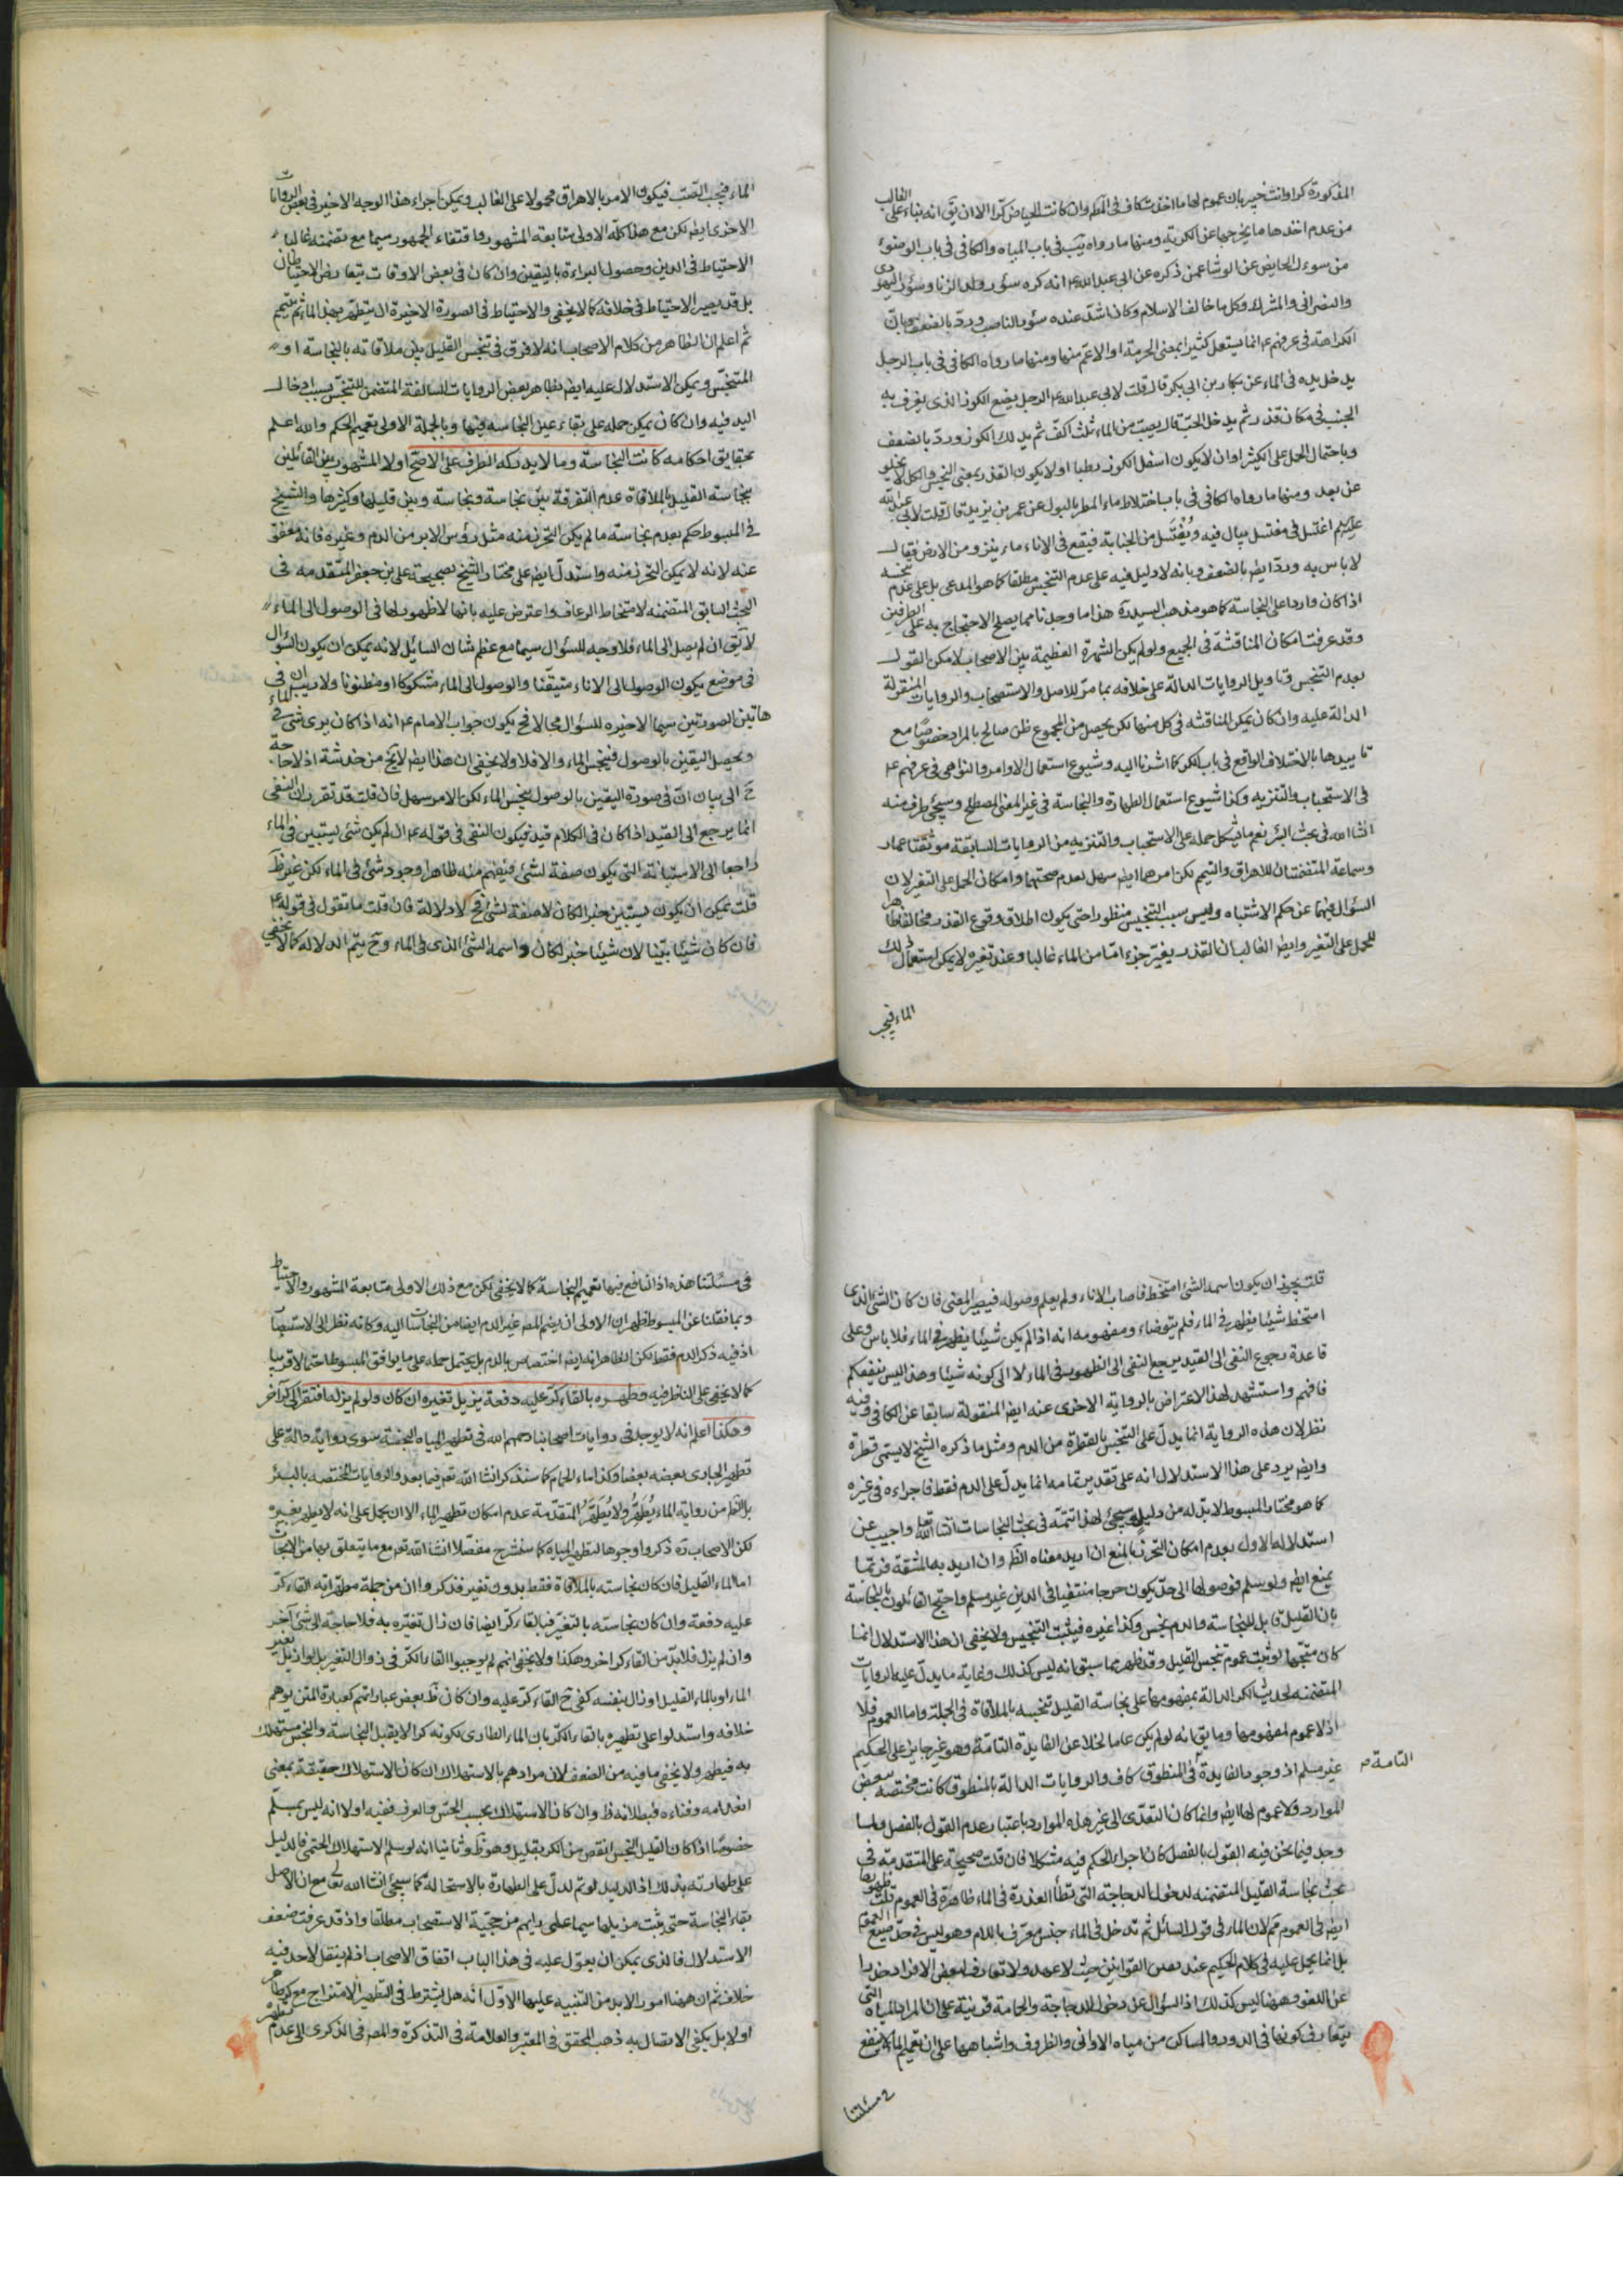 المذكورة كرا وانت خبير بان عموم لها ما اخذت كاف في الحكم وان كانت الحياض كرا الا ان يق انه بناء على الغالب
من عدم اخذها ما يخرجها عن الكرية ومنها ما رواه يب في باب المياه والكافي في باب الوضوء
من سوء ر الحايض عن الوشا عمن ذكره عن ابي عبد الله ع انه كره سئور ولد الزنا وسئور اليهودي
والنصراني والمشرك وكل ما خالف الاسلام وكان اشد عنده سئور الناصب ورد بالضعف وبان
الكراهة في عرفهم ع انما يستعمل كثيرا بمعنى الحرمة او الاعم منها ومنها ما رواه الكافي في باب الرجل
يدخل يده في الماء عن بكار بن ابي بكر قال قلت لابي عبد الله ع الرجل يضع الكوز الذي يغرف به
الجنب في مكان قذر ثم يدخله الحب قال يصب من الماء ثلث اكف ثم يدلك الكوز ورد بالضعف
وباحتمال الحمل على الكثير او ان لا يكون اسفل الكوز رطبا او لا يكون القذر بمعنى النجس والكل لا يخلو
عن بعد ومنها ما رواه الكافي في باب اختلاط ماء المطر بالبول عن عمر بن يزيد قال قلت لابي عبد الله
عليه السلم اغتسل في مغتسل يبال فيه ويُغْتَسل من الجنابة فيقع في الاناء ماء ينزو من الارض فقال
لا باس به ورد ايض بالضعف وبانه لا دليل فيه على عدم التنجس مطلقا كما هو المدعى بل على عدم تنجسه
اذا كان واردا على النجاسة كما هو مذهب السيد ره هذا ما وجدنا مما يصلح الاحتجاج به على الطرفين
وقد عرفت امكان المناقشة في الجميع ولو لم يكن الشهرة العظيمة بين الاصحاب لامكن القول
بعدم التنجس وتاويل الروايات الدالة على خلافه بما مر للاصل والاستصحاب والروايات المنقولة
الدالة عليه وان كان يمكن المناقشة في كل منها لكن يحصل من المجموع ظن صالح بالمراد خصوصا مع
تاييدها بالاختلاف الواقع في باب الكر كما اشرنا اليه وشيوع استعمال الاوامر والنواهي في عرفهم ع
في الاستحباب والتنزيه وكذا شيوع استعمال الطهارة والنجاسة في غير المعنى المصطلح وسيجئ طرف منه
انشاء الله في بحث البئر نعم ما يشكل حمله على الاستحباب والتنزيه من الروايات السابقة موثقتا عمار
وسماعة المتضمنتان للاهراق والتيمم لكن امرهما ايض سهل لعدم صحتهما وامكان الحمل على التغير لان
السؤال فيهما عن حكم الاشتباه وليس سبب التنجيس منظورا حتى يكون اطلاق وقوع القذر مخالفا ظاهرا
للحمل على التغير وايض الغالب ان القذر يغير جزء اما من الماء غالبا وعند تغيره لا يمكن استعمال ذلك
الماء فيجب
الماء فيجب الصب فيكون الامر بالاهراق محمولا على الغالب ويمكن اجراء هذا الوجه الاخير في بعض الروايات
الاخرى ايض لكن مع هذا كله الاولى متابعة المشهور واقتفاء الجمهور سيما مع تضمنه غالبا
الاحتياط في الدين وحصول البراءة باليقين وان كان في بعض الاوقات يتعارض الاحتياطان
بل قد يصير الاحتياط في خلافه كما لا يخفى والاحتياط في الصورة الاخيرة ان يتطهر بهذا الماء ثم يتيمم
ثم اعلم ان الظاهر من كلام الاصحاب انه لا فرق في تنجس القليل بين ملاقاته بالنجاسة او
المتنجس ويمكن الاستدلال عليه ايض بظاهر بعض الروايات السالفة المتضمن للتنجس بسبب ادخال
اليد فيه وان كان يمكن حمله على بقاء عين النجاسة فيها وبالجملة الاولى تعميم الحكم والله اعلم
بحقايق احكامه كانت النجاسة وما لا يدركه الطرف على الاصح او لا المشهور بين القائلين
بنجاسة القليل بالملاقاة عدم التفرقة بين نجاسة ونجاسة وبين قليلها وكثيرها والشيخ
في المبسوط حكم بعدم نجاسة ما لم يكن التحرز منه مثل رؤس الابر من الدم وغيره فانه معفو
عنه لانه لا يمكن التحرز منه واستدل ايض على مختار الشيخ بصحيحة علي بن جعفر المتقدمه في
البحث السابق المتضمنه لامتخاط الرعاف واعترض عليه بانها لا ظهور لها في الوصول الى الماء
لا يق ان لم يصل الى الماء فلا وجه للسؤال سيما مع عظم شان السائل لانه يمكن ان يكون السؤال
في موضع يكون الوصول الى الاناء متيقنا والوصول الى الماء مشكوكا او مظنونا ولا ريب ان في
هاتين الصورتين سيما الاخيره للسؤال مجالا فح يكون جواب الامام ع انه اذا كان يرى شئ في الماء
ويحصل اليقين بالوصول فينجس الماء والا فلا ولا يخفى ان هذا ايض لا يخ من خدشة اذ لا حاجة
ح الى بيان ان في صورة اليقين بالوصول ينجس الماء لكن الامر سهل فان قلت قد تقرر ان النفي
انما يرجع الى القيد اذا كان في الكلام قيد فيكون النفي في قوله ع ان لم يكن شئ يستبين في الماء
راجعا الى الاستبانة التي يكون صفة لشئ فيفهم منه ظاهرا وجود شئ في الماء لكن غير ظ
قلت يمكن ان يكون يستبين خبرا لكان لا صفة لشئ فح لا دلالة فان قلت ما تقول في قوله ع
فان كان شيئا بينا لان شيئا خبر لكان واسمه الشئ الذي في الماء وح يتم الدلاله كما لا يخفى
قلت يجوز ان يكون اسمه الشئ امتخط فاصاب الاناء ولم يعلم وصوله فيصير المعنى فان كان الشئ الذي
امتخط شيئا يظهر في الماء فلم يتوضاء ومفهومه انه اذا لم يكن شيئا يظهر في الماء فلا باس وعلى
قاعدة رجوع النفي الى القيد يرجع النفي الى الظهور في الماء لا الى كونه شيئا وهذا ليس بنفعكم
فافهم واستشهد لهذا الاعتراض بالرواية الاخرى عنه ايض المنقولة سابقا عن الكافي وفيه
نظر لان هذه الرواية انما يدل على التنجس بالقطرة من الدم ومثل ما ذكره الشيخ لا يسمى قطرة
وايض يرد على هذا الاستدلال انه على تقدير تمامه انما يدل على الدم فقط فاجراءه في غيره
كما هو مختار المبسوط لا بد له من دليل وسيجئ لهذا تتمة في بحث النجاسات انشاء الله تعالى واجيب عن
استدلاله الاول بعدم امكان التحرز بالمنع ان اريد معناه الظ وان اريد به المشقة فربما
يمنع ايض ولو سلم فوصولها الى حد يكون حرجا منتفيا في الدين غير مسلم واحتج القائلون بالنجاسة
بان القليل قابل للنجاسة والدم نجس وكذا غيره فيثبت التنجيس ولا يخفى ان هذا الاستدلال انما
كان متجها لو ثبت عموم تنجس القليل وقد ظهر مما سبق انه ليس كذلك وغاية ما يدل عليه الروايات
المتضمنه لحديث الكر الدالة بمفهومها على نجاسة القليل تنجسه بالملاقاة في الجملة واما العموم فلا
اذ لا عموم لمفهومها وما يق انه لو لم يكن عاما لخلا عن الفايدة التامة وهو غير جايز على الحكيم
غير مسلم اذ وجود الفايدة في المنطوق كاف والروايات الدالة بالمنطوق كانت مختصة ببعض
التامة م
الموارد فلا عموم لها ايض وانما كان التعدي الى غير هذه الموارد باعتبار عدم القول بالفصل ولما
وجد فيما نحن فيه القول بالفصل كان اجراء الحكم فيه مشكلا فان قلت صحيحة علي المتقدمة في
بحث نجاسة القليل المتضمنه لدخول الدجاجة التي تطأ العذرة في الماء ظاهرة في العموم قلت ظهورها
ايض في العموم مم لان الماء في قول السائل ثم تدخل في الماء جنس معرف باللام وهو ليس في حد صيغ العموم
بل انما يحمل عليه في كلام الحكيم عند بعض القوانين حيث لا عهد ولا تعارف لبعض الافراد حذرا
عن اللغو وههنا ليس كذلك اذ السؤال عن دخول الدجاجة والحمامة قرينة على ان المراد المياه التي
يتعارف كونها في الدور والمساكن من مياه الاواني والظروف واشباهها على ان تعميم الماء لا ينفع
في مسئلتنا
في مسئلتنا هذه اذ النافع فيها تعميم النجاسة كما لا يخفى لكن مع ذلك الاولى متابعة المشهور والاحتياط
وبما نقلنا عن المبسوط ظهر ان الاولى ان يضم المص غير الدم ايضا من النجاسات اليه وكانه نظر الى الاستبصار
اذ فيه ذكر الدم فقط لكن الظاهر انه ايض اختصاص بالدم بل يحتمل حمله على ما يوافق المبسوط احتمالا قريبا
كما لا يخفى على الناظر فيه وطهره بالقاء كر عليه دفعة يزيل تغيره ان كان ولو لم يزله افتقر الى كر آخر
وهكذا اعلم انه لا يوجد في روايات اصحابنا رحمهم الله في تطهير المياه النجسة سوى رواية دالة على
تطهير الجاري بعضه بعضا وكذا ماء الحمام كما سنذكر انشاء الله تعم فيما بعد والروايات المختصه بالبئر
بل الظ من رواية الماء يُطَهِّر ولا يُطَهَّر المتقدمة عدم امكان تطهير الماء الا ان يحمل على انه لا يطهر بغيره
لكن الاصحاب ره ذكروا وجوها لتطهير المياه كما سنشرح مفصلا انشاء الله تعم مع ما يتعلق بها من الابحاث
اما الماء القليل فان كان نجاسته بالملاقاة فقط بدون تغير فذكروا ان من جملة مطهراته القاء كر
عليه دفعة وان كان نجاسته بالتغير فبالقاء كر ايضا فان زال تغيره به فلا حاجة الى شئ آخر
وان لم يزل فلا بد من القاء كر اخر وهكذا ولا يخفى انهم لم يوجبوا القاء الكر في زوال التغير بل لو ازيل تغير
الماء او بالماء القليل او زال بنفسه كفى ح القاء كر عليه وان كان ظ بعض عباراتهم كعبارة المتن يوهم
خلافه واستدلوا على تطهيره بالقاء الكر بان الماء الطاري لكونه كرا لا يقبل النجاسة والنجس مستهلك
به فيطهر ولا يخفى ما فيه من الضعف لان مرادهم بالاستهلاك ان كان الاستهلاك حقيقة بمعنى
انعدامه وفناءه فبطلانه ظ وان كان الاستهلاك بحسب الحس والعرف ففيه اولا انه ليس بمسلم
خصوصا اذا كان القليل النجس انقص من الكر بقليل وهو ظ وثانيا انه لو سلم الاستهلاك الحسي فالدليل
على طهارته بذلك اذ الدليل لو تم لدل على الطهارة بالاستحالة كما سيجئ انشاء الله تعالى مع ان الاصل
بقاء النجاسة حتى يثبت مزيلها سيما على رايهم من حجية الاستصحاب مطلقا واذ قد عرفت ضعف
الاستدلال فالذي يمكن ان يعول عليه في هذا الباب اتفاق الاصحاب اذ لم ينقل لاحد فيه
خلاف ثم ان ههنا امور لا بد من التنبيه عليها الاول انه هل يشترط في التطهير الامتزاج مع كر طاهر
او لا بل يكفي الاتصال به ذهب المحقق في المعتبر والعلامة في التذكرة والمص في الذكرى الى عدم تطهره